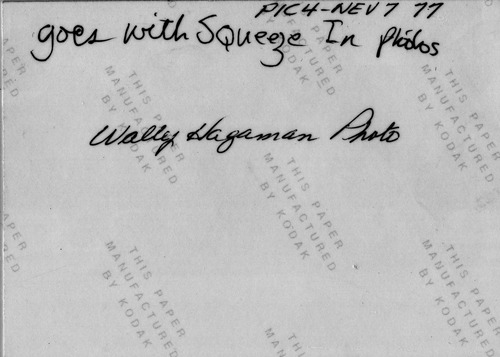 PIC4-NEV7 77
goes with SQueeze In photos
Wally Hagaman Photo
THIS PAPER
MANUFACTURED
BY KODAK
THIS PAPER
MANUFACTURED
BY KODAK
THIS PAPER
MANUFACTURED
BY KODAK
THIS PAPER
MANUFACTURED
BY KODAK
THIS PAPER
MANUFACTURED
BY KODAK
THIS PAPER
MANUFACTURED
BY KODAK
THIS PAPER
MANUFACTURED
BY KODAK